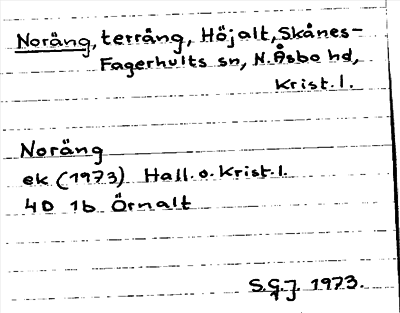 Noräng, terräng, Höjalt, Skånes-
Fagerhults sn, N. Åsbo hd,
Krist. l.
Noräng
ek (1973) Hall. o. Krist. l.
4D 1b Örnalt
S.G.J. 1973.